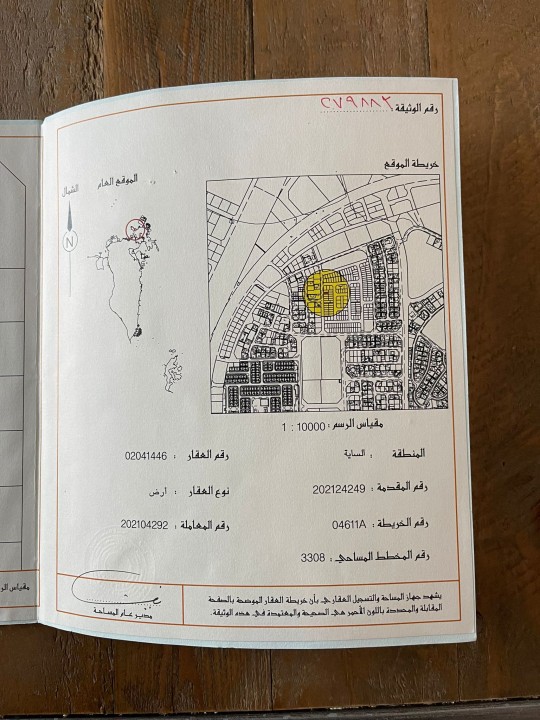 رقم الوثيقة : ٢٧٩٨٨٢
خريطة الموقع
الموقع العام
الشمال
N
مقياس الرسم : 10000 : 1
المنطقة : الساية
رقم العقار : 02041446
رقم المقدمة : 202124249
نوع العقار : أرض
رقم الخريطة : 04611A
رقم المعاملة : 202104292
رقم المخطط المساحي : 3308
يشهد جهاز المساحة والتسجيل العقاري بأن خريطة العقار الموضحة بالصفحة
المقابلة والمحددة باللون الأحمر هي الصحيحة والمعتمدة في هذه الوثيقة.
مدير عام المساحة
مقياس الر